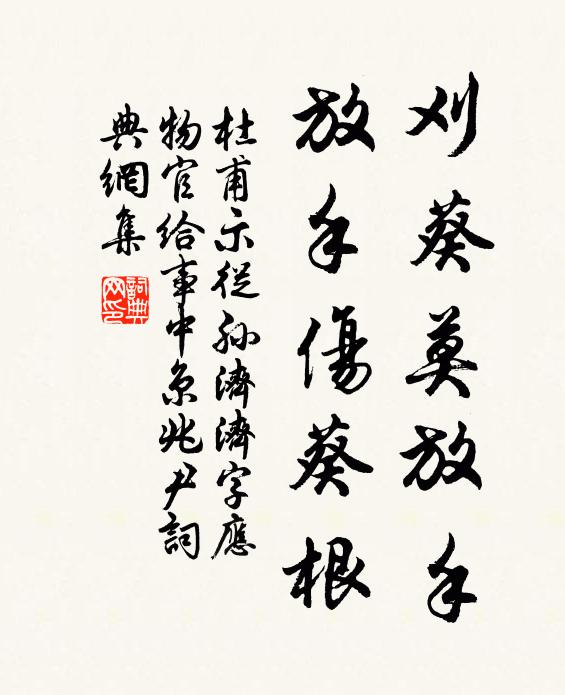 刈葵莫放手
放手傷葵根
杜甫示從孫濟濟字應
物官給事中京兆尹詞
典網集
詞典
网印